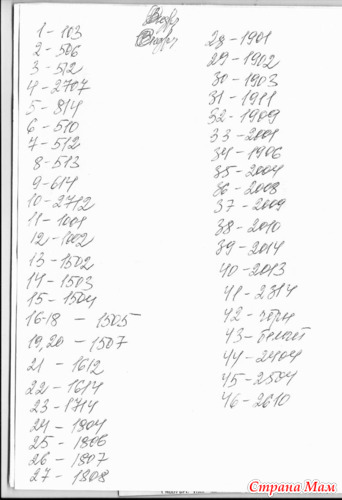 1 - 103
2 - 506
3 - 512
4 - 2707
5 - 814
6 - 510
7 - 512
8 - 513
9 - 614
10 - 2712
11 - 1001
12 - 1002
13 - 1502
14 - 1503
15 - 1504
16-18 - 1505
19,20 - 1507
21 - 1612
22 - 1614
23 - 1714
24 - 1804
25 - 1806
26 - 1807
27 - 1808
28 - 1901
29 - 1902
30 - 1903
31 - 1911
32 - 1909
33 - 2001
34 - 1906
35 - 2004
36 - 2008
37 - 2009
38 - 2010
39 - 2014
40 - 2013
41 - 2314
42 - черн
43 - белый
44 - 2404
45 - 2504
46 - 2610
Страна Мам